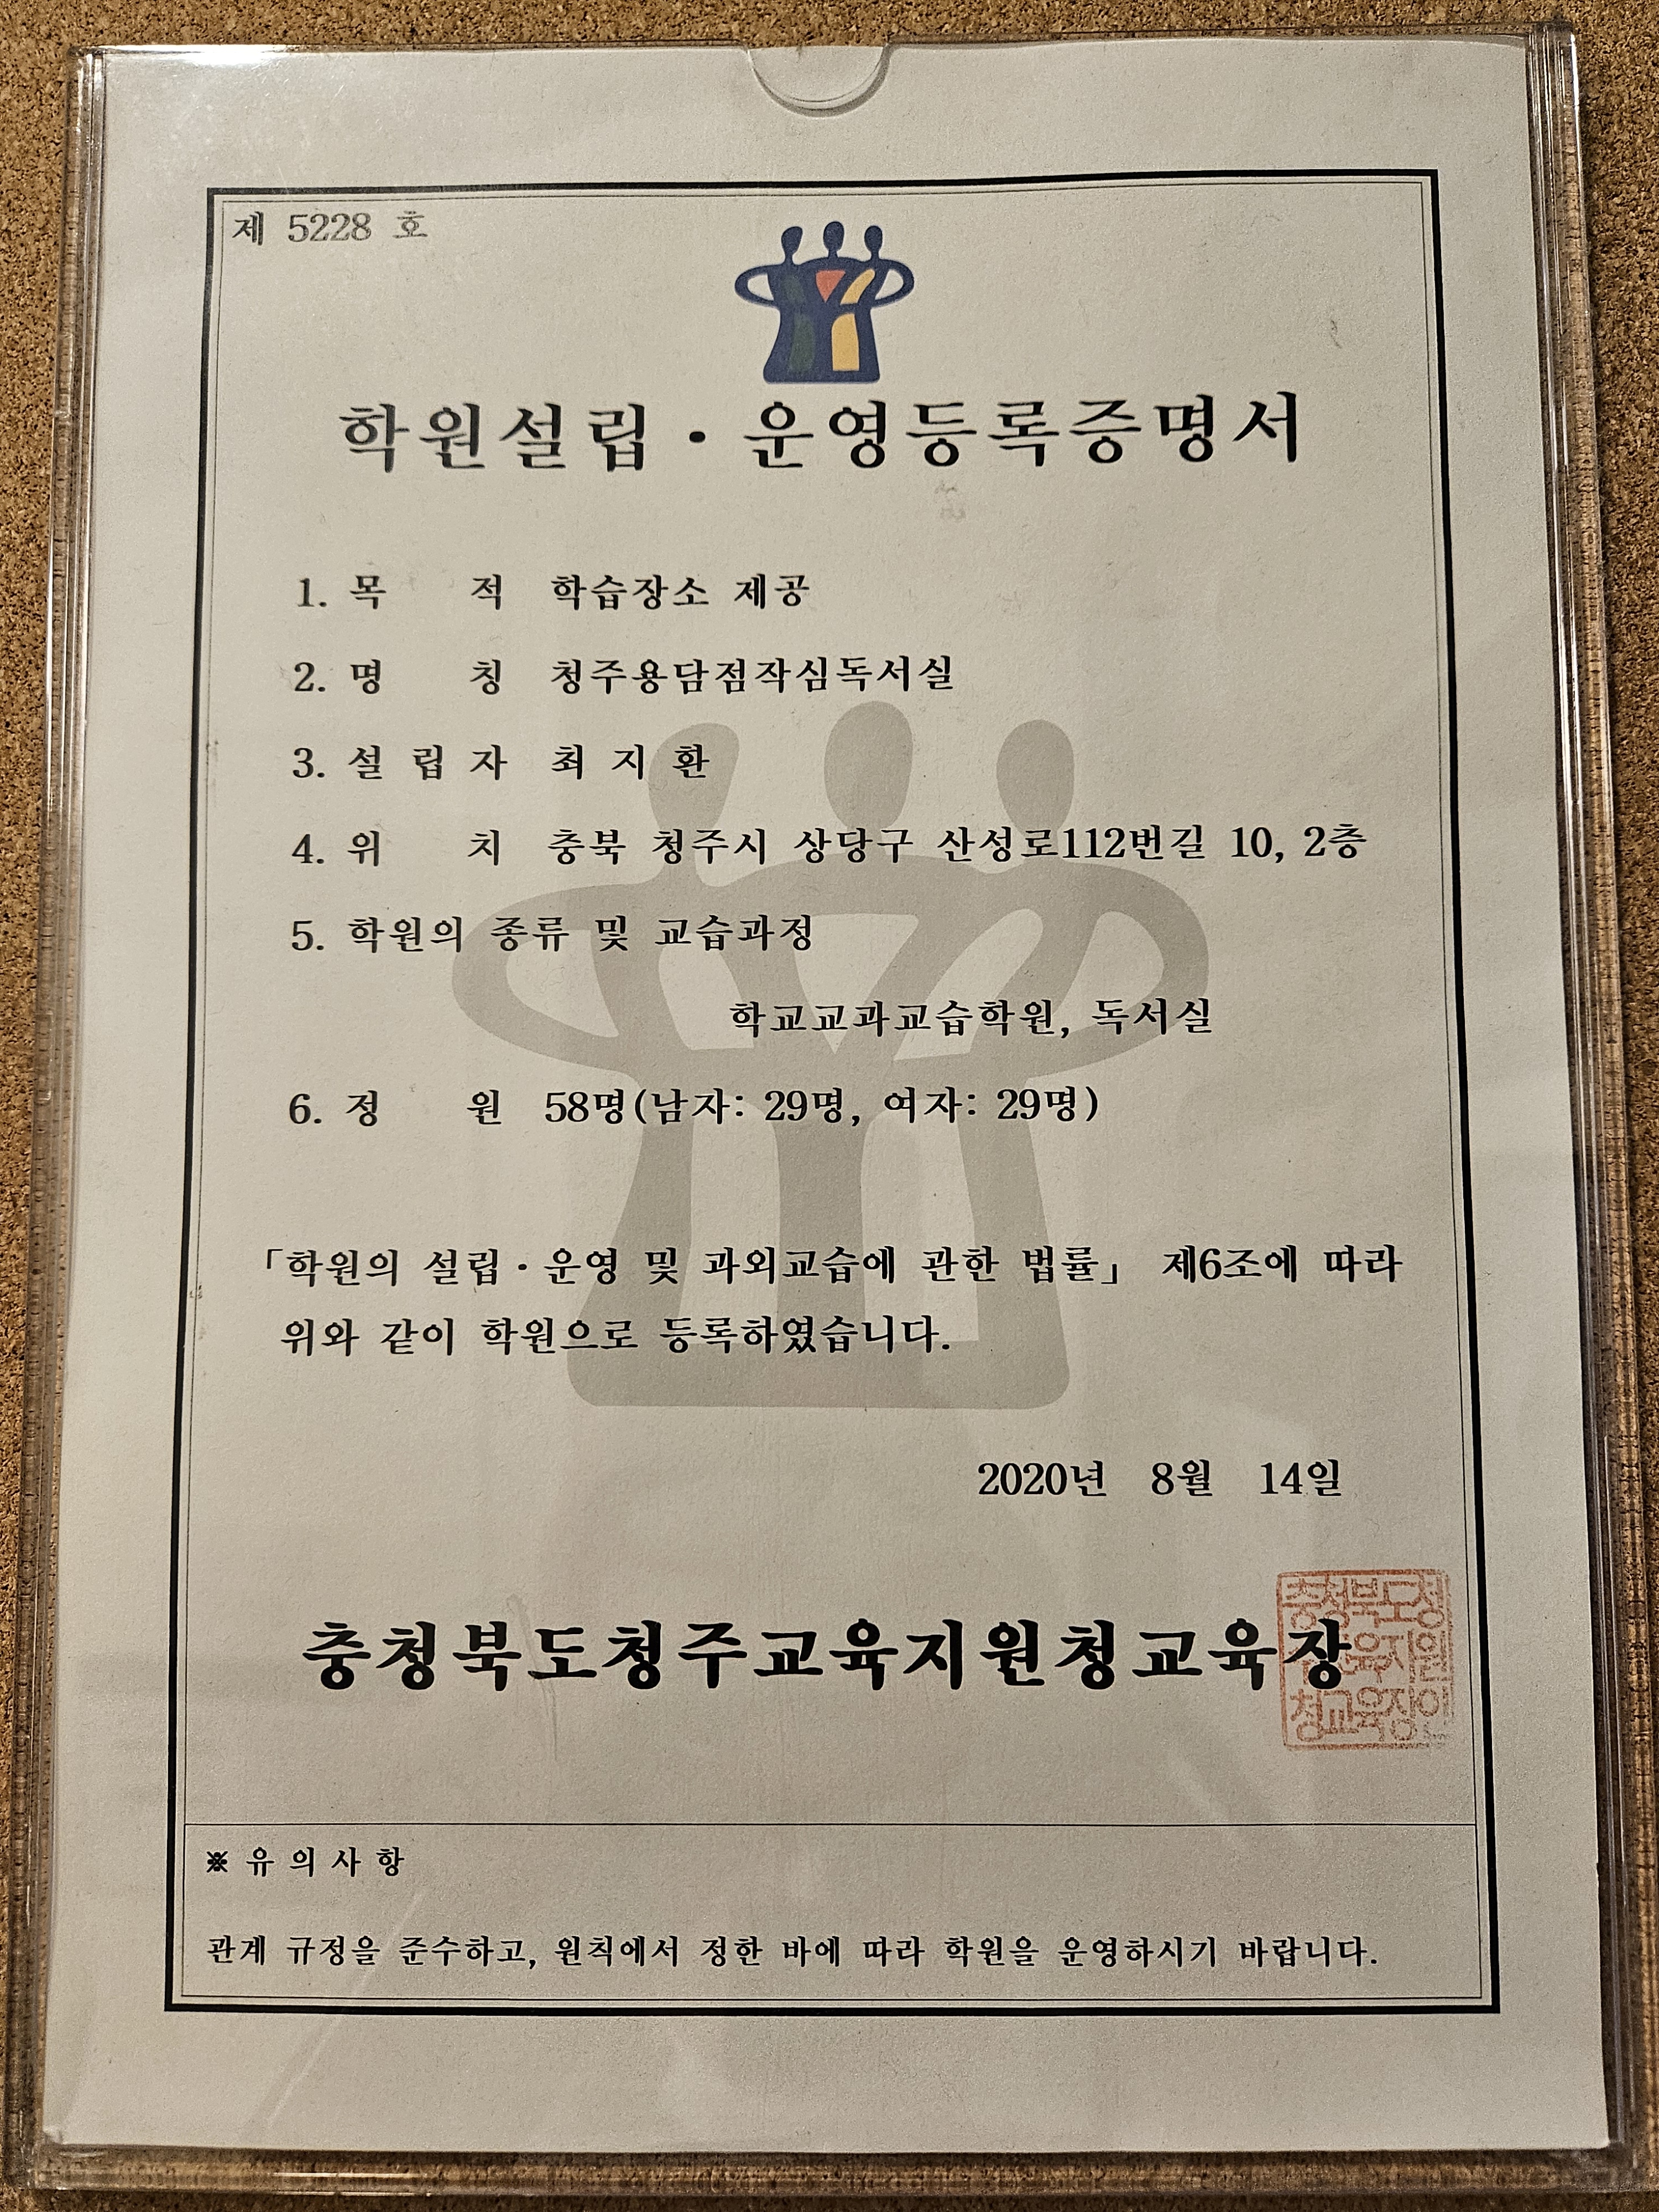 제 5228 호
학원설립·운영등록증명서
1. 목 적 학습장소 제공
2. 명 칭 청주용담점작심독서실
3. 설 립 자 최 지 환
4. 위 치 충북 청주시 상당구 산성로112번길 10, 2층
5. 학원의 종류 및 교습과정
학교교과교습학원, 독서실
6. 정 원 58명(남자: 29명, 여자: 29명)
「학원의 설립·운영 및 과외교습에 관한 법률」 제6조에 따라
위와 같이 학원으로 등록하였습니다.
2020년 8월 14일
충청북도청주교육지원청교육장
충청북도청
육지원
청교육장인
※ 유 의 사 항
관계 규정을 준수하고, 원칙에서 정한 바에 따라 학원을 운영하시기 바랍니다.